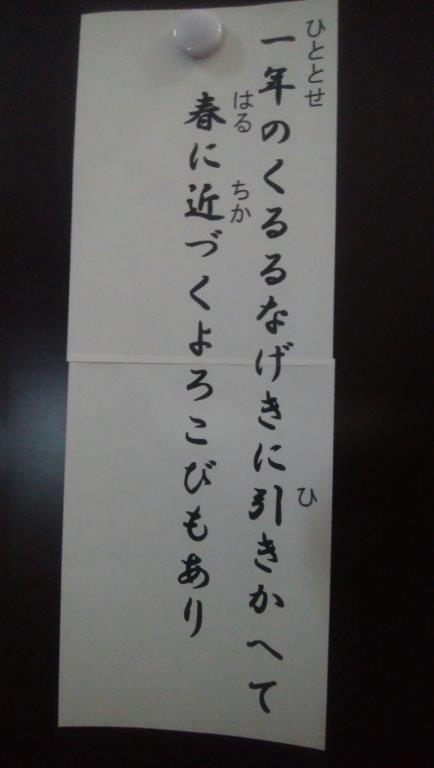 一年のくるるなげきに引きかへて
ひととせ
ひ
春に近づくよろこびもあり
はる
ちか